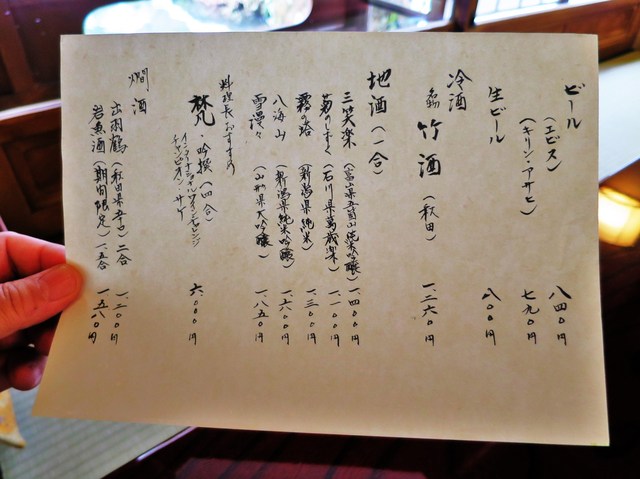 ビール
(エビス) 八四〇円
(キリン・アサヒ) 七九〇円
生ビール 八〇〇円
冷酒
竹酒 (秋田) 一、二六〇円
地酒 (一合)
三笑楽 (富山県五箇山純米吟醸) 一、四〇〇円
菊のしずく (石川県萬歳楽) 一、一〇〇円
霧の塔 (新潟県純米) 一、三〇〇円
八海山 (新潟県純米吟醸) 一、六〇〇円
雪漫々 (山形県大吟醸) 一、八五〇円
料理長おすすめ
梵・吟撰 (四合) 六、〇〇〇円
インターナショナルワインチャレンジ
チャンピオン サケ
燗酒
出羽鶴 (秋田県辛口) 二合 一、二〇〇円
岩魚酒 (期間限定) 一、五合 一、五八〇円